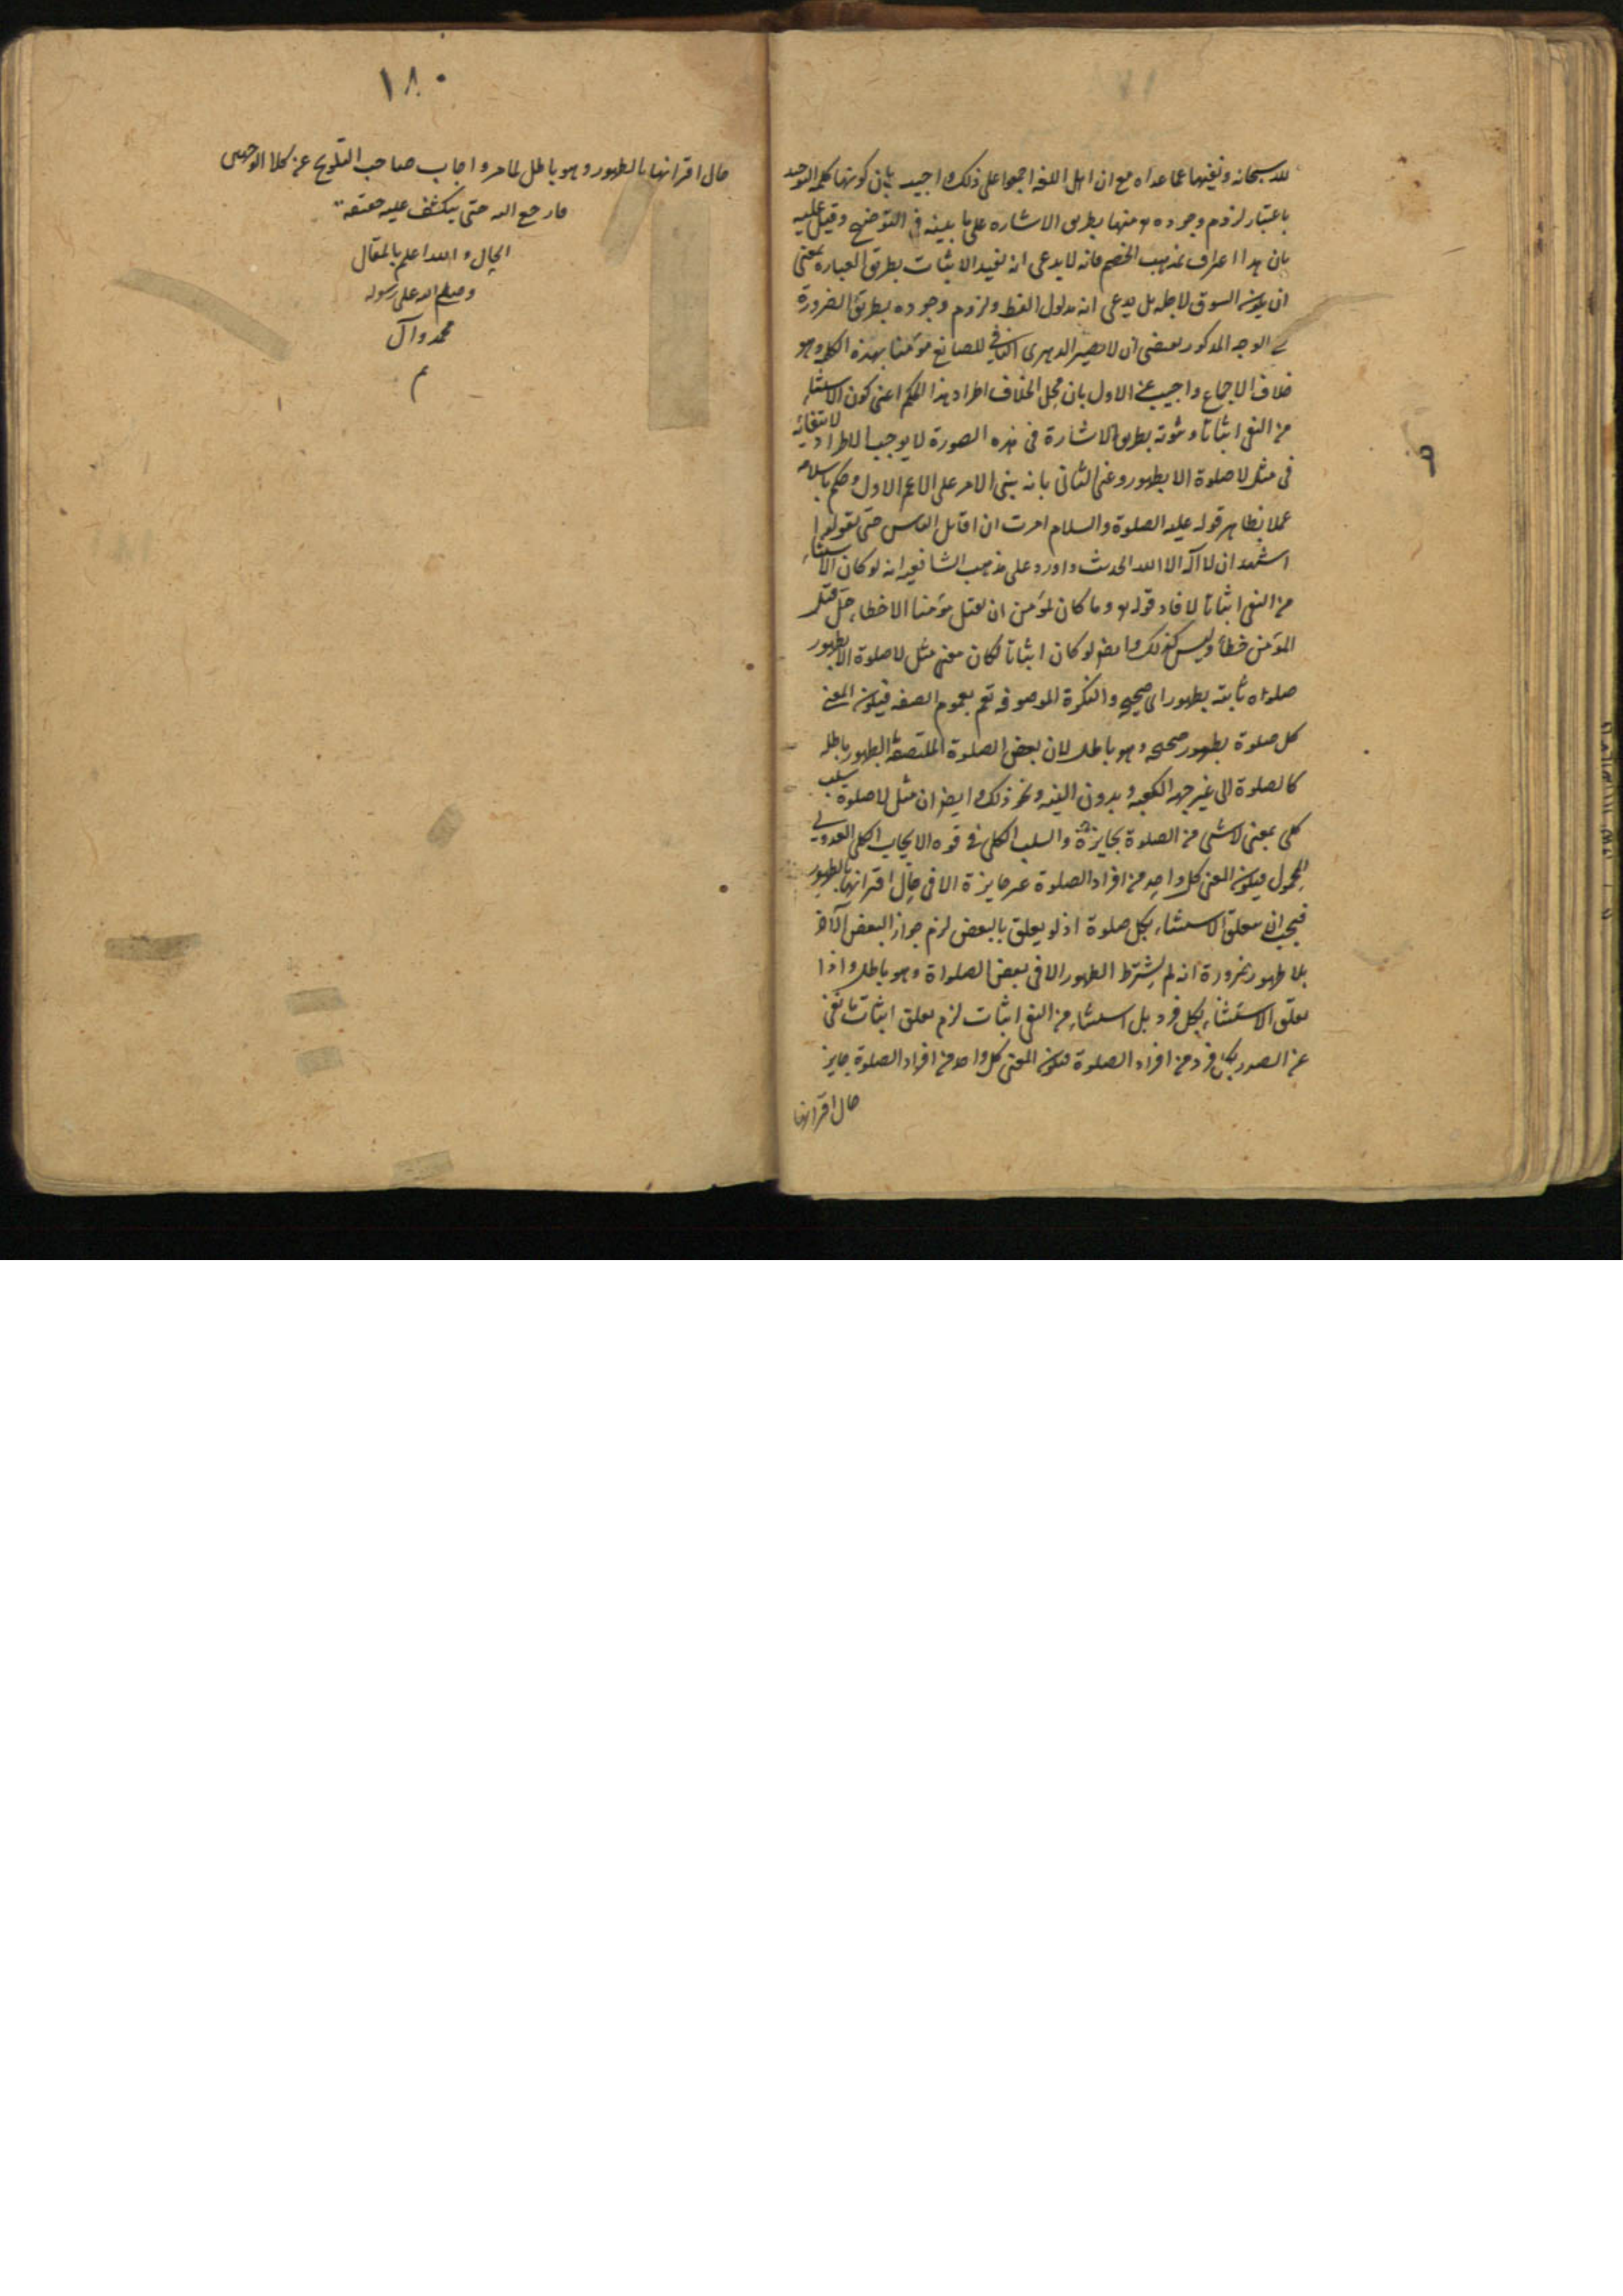 لله سبحانه ونفيها عما عداه مع ان اهل اللغة اجمعوا على ذلك واجيب بان كونها كلمة التوحيد
باعتبار لزوم وجوده تع منها بطريق الاشاره على ما بينه فى التوضيح وقيل عليه
بان هذا اعتراف بمذهب الخصم فانه لا يدعى انه يفيد الاثبات بطريق العبارة بمعنى
ان يكون السوق لاجله بل يدعى انه مدلول اللفظ ولزوم وجوده بطريق الضرورة
الوجه المذكور يقتضى ان لا يصير الدهرى النافى للصانع مؤمنا بهذه الكلمة وهو
خلاف الاجماع واجيب عن الاول بان محل الخلاف اطراد هذا الحكم اعنى كون الاستثناء
من النفى اثباتا وثبوته بطريق الاشارة فى هذه الصورة لا يوجب الاطراد لانتفائه
فى مثل لا صلوة الا بطهور وعن الثانى بانه يبنى الامر على الاعم الاول وحكم باسلامه
عملا بظاهر قوله عليه الصلوة والسلام امرت ان اقاتل الناس حتى يقولوا
اشهد ان لا اله الا الله الحديث واورد على مذهب الشافعية انه لو كان الاستثناء
من النفى اثباتا لافاد قوله تع وما كان لمؤمن ان يقتل مؤمنا الا خطاء حل قتل
المؤمن خطأ وليس كذلك وايضا لو كان اثباتا لكان معنى مثل لا صلوة الا بطهور
صلواه ثابتة بطهور اى صحيحة والنكرة الموصوفه تعم بعموم الصفه فيكون المعنى
كل صلوة بطهور صحيحه وهو باطل لان بعض الصلوة الملتصقة بالطهور باطله
كالصلوة الى غير جهة الكعبه وبدون النيه ونحو ذلك وايضا ان مثل لا صلوة سلب
كلى بمعنى لا شى من الصلوة بجايزة والسلب الكلى فى قوه الايجاب الكلى المعدولى
المحمول فيكون المعنى كل واحد من افراد الصلوة غير جايزة الا فى حال اقترانها بالطهور
فيجب ان يتعلق الاستثناء بكل صلوة اذ لو يعلق بالبعض لزم جواز البعض الآخر
بلا طهور ضرورة انه لم يشترط الطهور الا فى بعض الصلواة وهو باطل واذا
تعلق الاستثناء بكل فرد بل استثناء من النفى اثبات لزم تعلق اثبات ما نفى
عن الصدر بكل فرد من افراد الصلوة فيكون المعنى كل واحد من افراد الصلوة جايز
حال اقترانها
١٨٠
حال اقترانها بالطهور وهو باطل لما مر واجاب صاحب التلويح عن كلا الوجهين
فارجع اليه حتى ينكشف عليه حقيقة
الحال والله اعلم بالمقال
وصلى الله على رسوله
محمد وآل
م